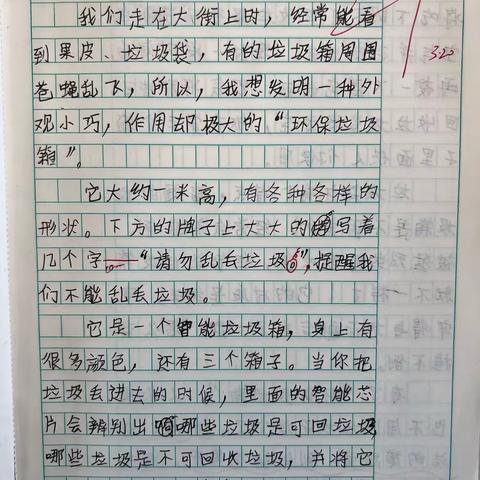 我们走在大街上时，经常能看
到果皮、垃圾袋，有的垃圾箱周围
苍蝇乱飞，所以，我想发明一种外
观小巧，作用却极大的“环保垃圾
箱”。
它大约一米高，有各种各样的
形状。下方的牌子上大大的写着
几个字——“请勿乱丢垃圾。”，提醒我
们不能乱丢垃圾。
它是一个智能垃圾箱，身上有
很多颜色，还有三个箱子。当你把
垃圾丢进去的时候，里面的智能芯
片会辨别出哪些垃圾是可回垃圾，
哪些垃圾是不可回收垃圾，并将它
320